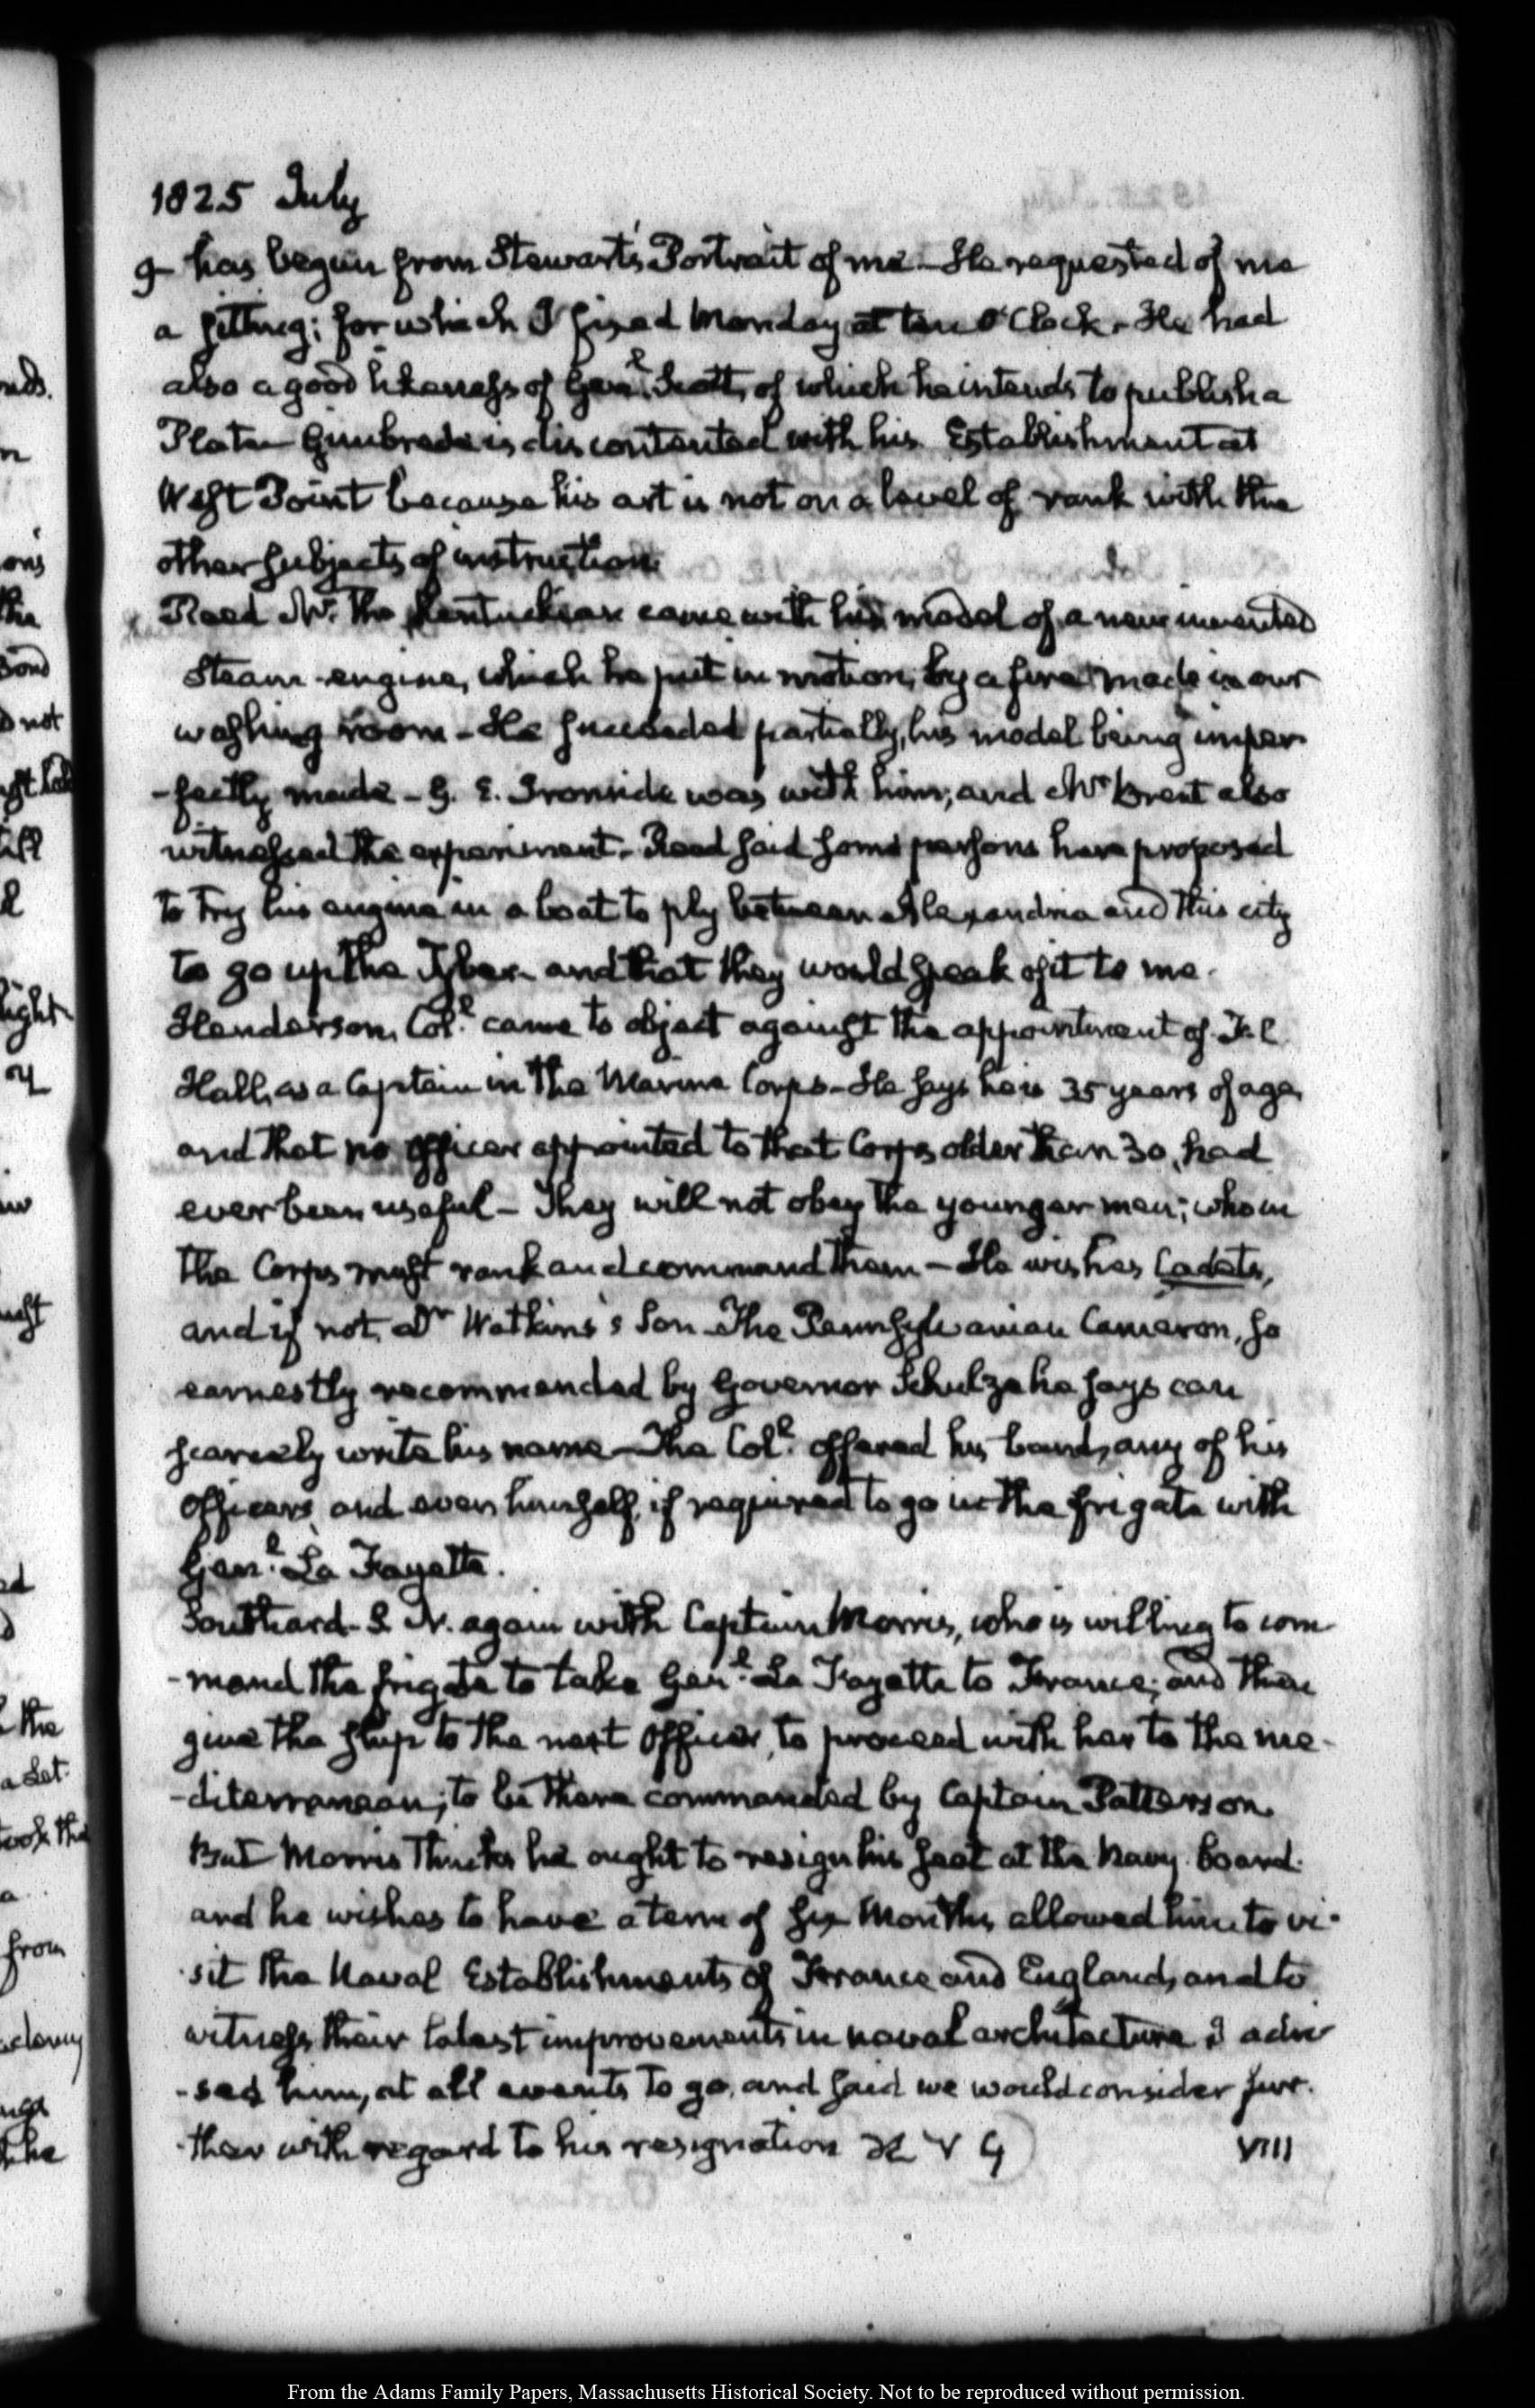 1825 July
9- has begun from Stewart's Portrait of me - He requested of me
a sitting; for which I fixed Monday at ten O'Clock - He had
also a good likeness of Genl. Scott, of which he intends to publish a
Plate - Gimbrede is discontented with his Establishment at
West Point because his art is not on a level of rank with the
other subjects of instruction.
Reed Mr. The Kentuckian came with his model of a new invented
Steam-engine, which he put in motion, by a fire made in our
washing room - He succeeded partially, his model being imper
-fectly made - G. E. Ironside was with him; and Mr Brent also
witnessed the experiment - Reed said some persons have proposed
to try his engine in a boat to ply between Alexandria and this city
to go up the Tyber - and that they would speak of it to me.
Henderson, Coll. came to object against the appointment of
Hall, as a Captain in the Marine Corps - He says he is 35 years of age,
and that no officer appointed to that Corps older than 30, had
ever been useful - They will not obey the younger men; who in
the Corps must rank and command them - He wishes Cadets,
and if not, Dr Watkins's Son - The Pennsylvanian Cameron, so
earnestly recommended by Governor Schulze he says can
scarcely write his name - The Coll. offered his band, any of his
Officers, and even himself, if required to go in the frigate with
Genl. La Fayette.
Southard - S. N. again with Captain Morris, who is willing to com
-mand the frigate to take Genl. La Fayette to France; and then
give the ship to the next Officer, to proceed with her to the me-
-diterranean; to be there commanded by Captain Patterson.
But Morris thinks he ought to resign his seat at the Navy board.
and he wishes to have a term of six Months allowed him to vi-
-sit the Naval Establishments of France and England, and to
witness their latest improvements in naval architecture I advi
-sed him, at all events to go, and said we would consider fur-
-ther with regard to his resignation VIII
ands.
n
ons
the
not
ight
the
a Set
took the
a
from
the
From the Adams Family Papers, Massachusetts Historical Society. Not to be reproduced without permission.